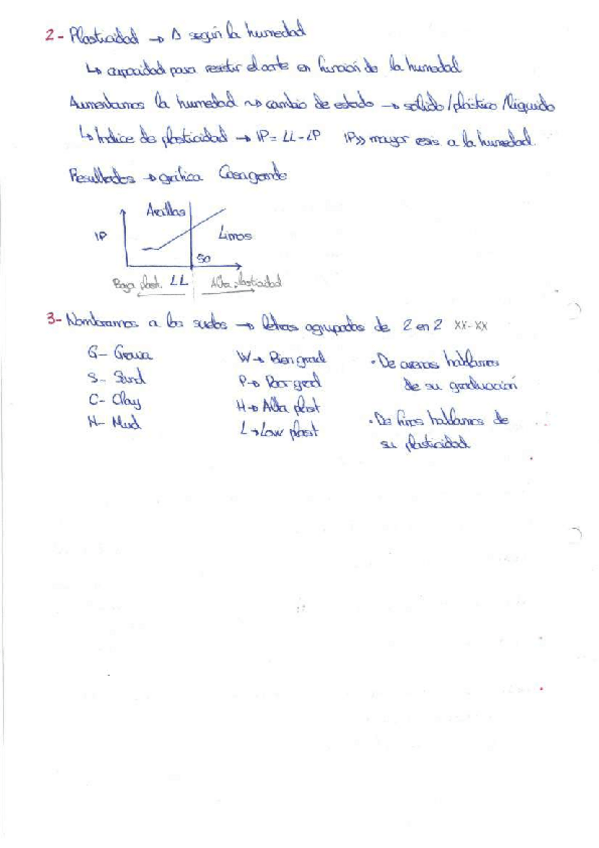 2- Plasticidad → Δ según la humedad
↳ capacidad para resistir el corte en función de la humedad
Aumentamos la humedad ↝ cambio de estado → sólido/plástico/líquido
↳ Índice de plasticidad → IP = LL-LP IP>> mayor es a la humedad
Resultados → gráfica Casagrande
Arcillas
IP
Limos
50
Baja plast. LL Alta plasticidad
3- Nombramos a los suelos → letras agrupadas de 2 en 2 XX-XX
G- Grava W→ Bien grad • De arenas hablamos
S- Sand P→ Poor grad de su graduación
C- Clay H→ Alta plast
M- Mud L→ Low plast • De finos hablamos de
su plasticidad